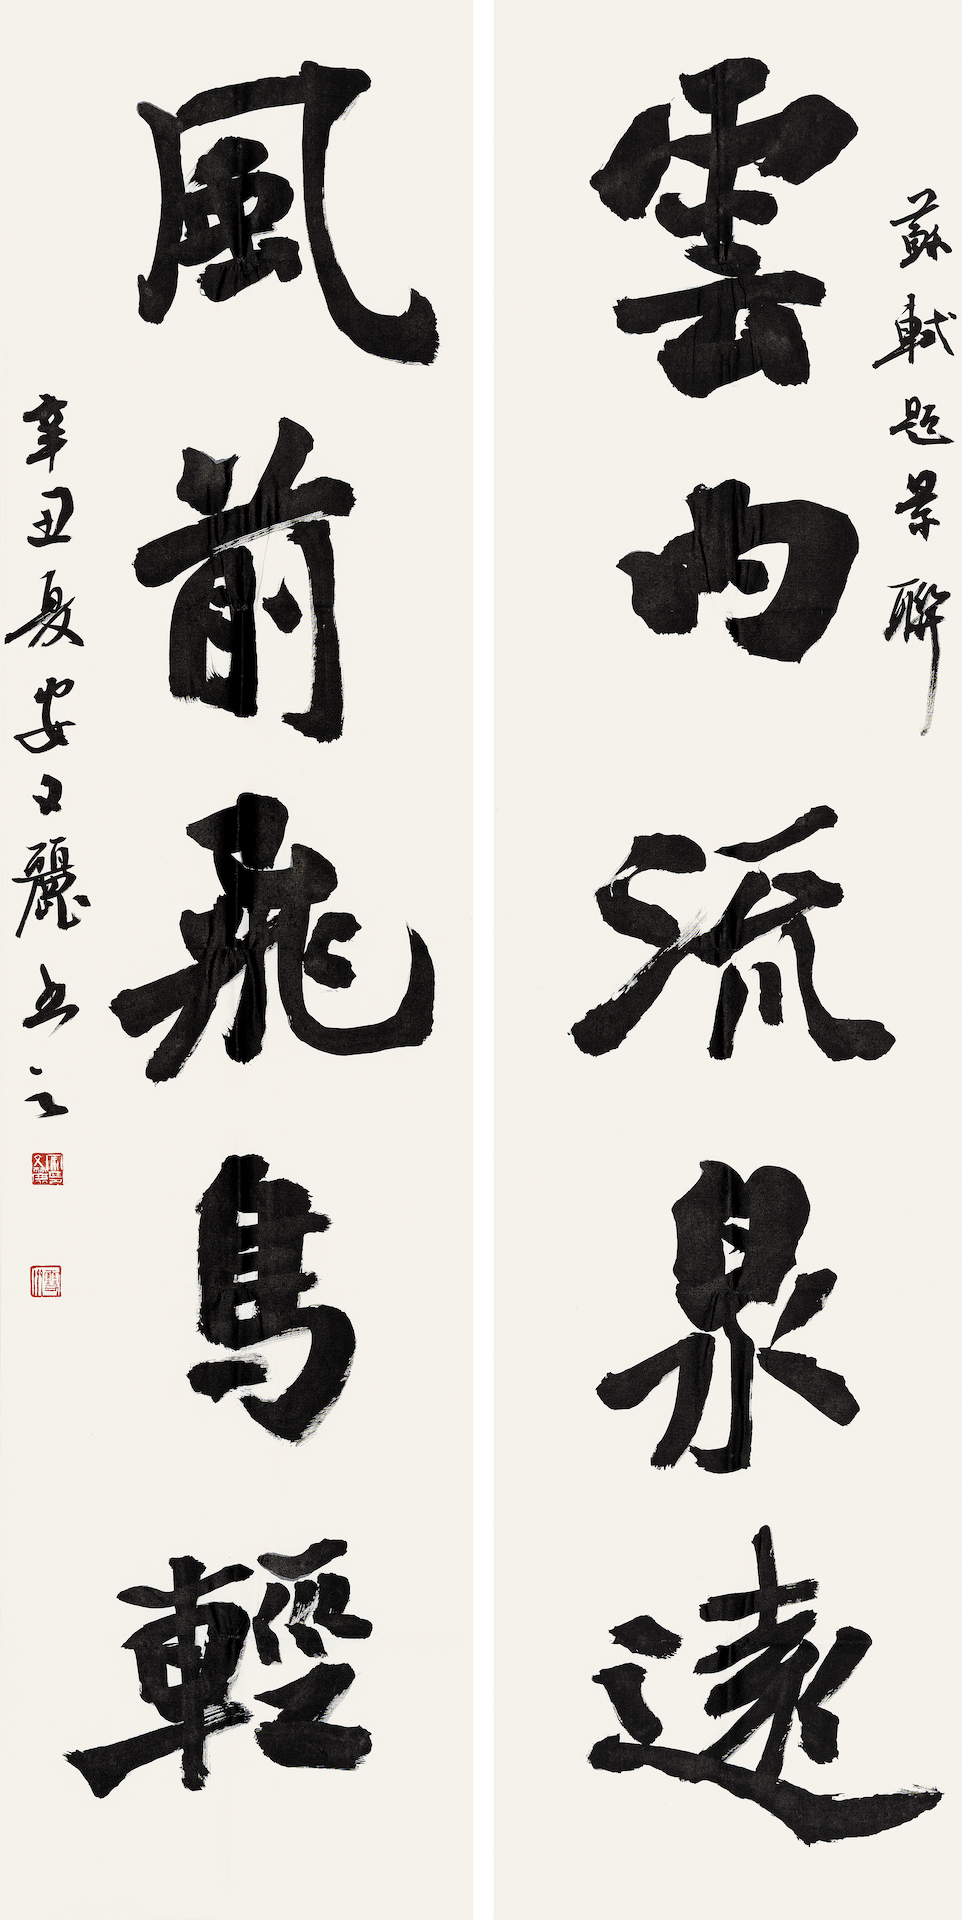 蘇軾題景聯
雲內流泉遠
風前飛鳥輕
辛丑夏安文麗書之